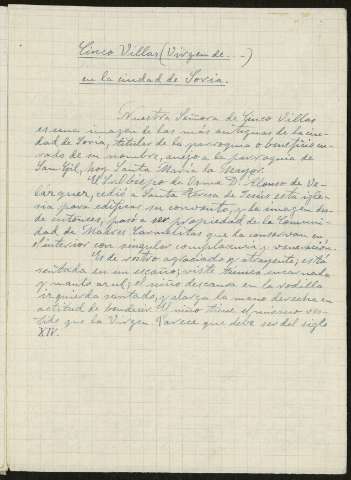 Cinco Villas (Virgen de...-)
en la ciudad de Soria.
Nuestra Señora de Cinco Villas
es una imagen de las más antiguas de la ciu-
dad de Soria, titular de la parroquia o beneficio cu-
rado de su nombre, anejo a la parroquia de
San Gil, hoy Santa María la Mayor.
El Sr. Obispo de Osma D. Alonso de Ve-
lázquez, cedió a Santa Teresa de Jesús esta igle-
sia para edificar su convento, y la imagen des-
de entonces, pasó a ser propiedad de la Comuni-
dad de Madres Carmelitas que la conservan en
el interior con singular complacencia y veneración.
Es de rostro agraciado y atrayente, está
sentada en un escaño; viste túnica encarnada
y manto azul; el niño descansa en la rodilla
izquierda sentado, y alarga la mano derecha en
actitud de bendecir. El niño tiene el mismo ves-
tido que la Virgen. Parece que debe ser del siglo
XIV.